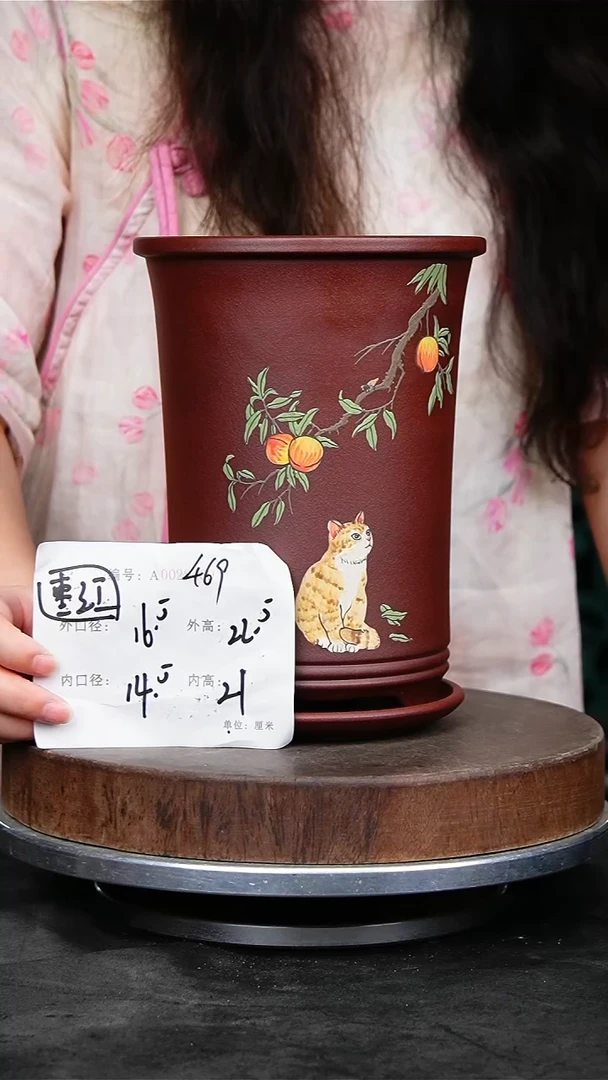 编号：A00 469
枣红
外口径： 16.5 外高： 22.5
内口径： 14.5 内高： 21
单位：厘米